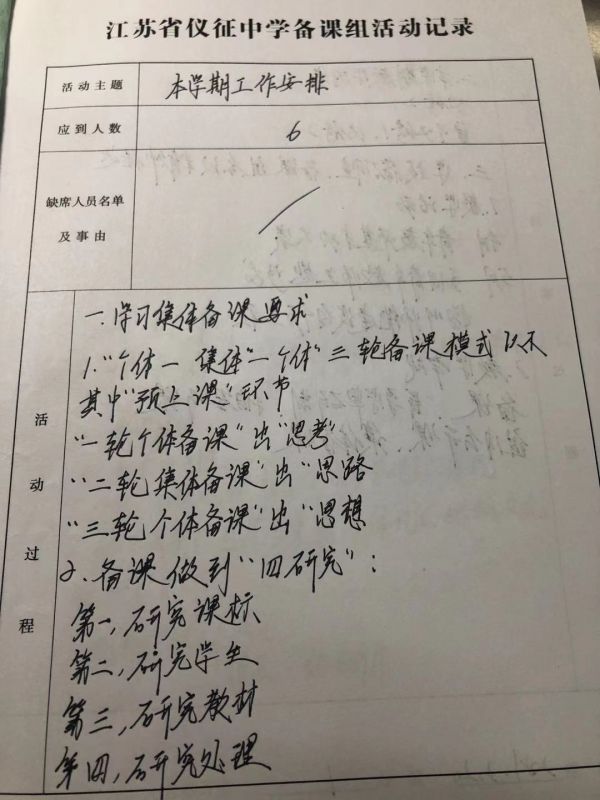 江苏省仪征中学备课组活动记录
活动主题
本学期工作安排
应到人数
6
缺席人员名单
及事由
活动过程
一.学习集体备课要求
1."个体一集体"一个体"三轮备课模式以不
其中"预上课"环节
"一轮个体备课"出"思考"
"二轮集体备课"出"思路
"三轮个体备课"出"思想
2.备课做到"四研究":
第一,研究课标
第二,研究学生
第三,研究教材
第四,研究处理